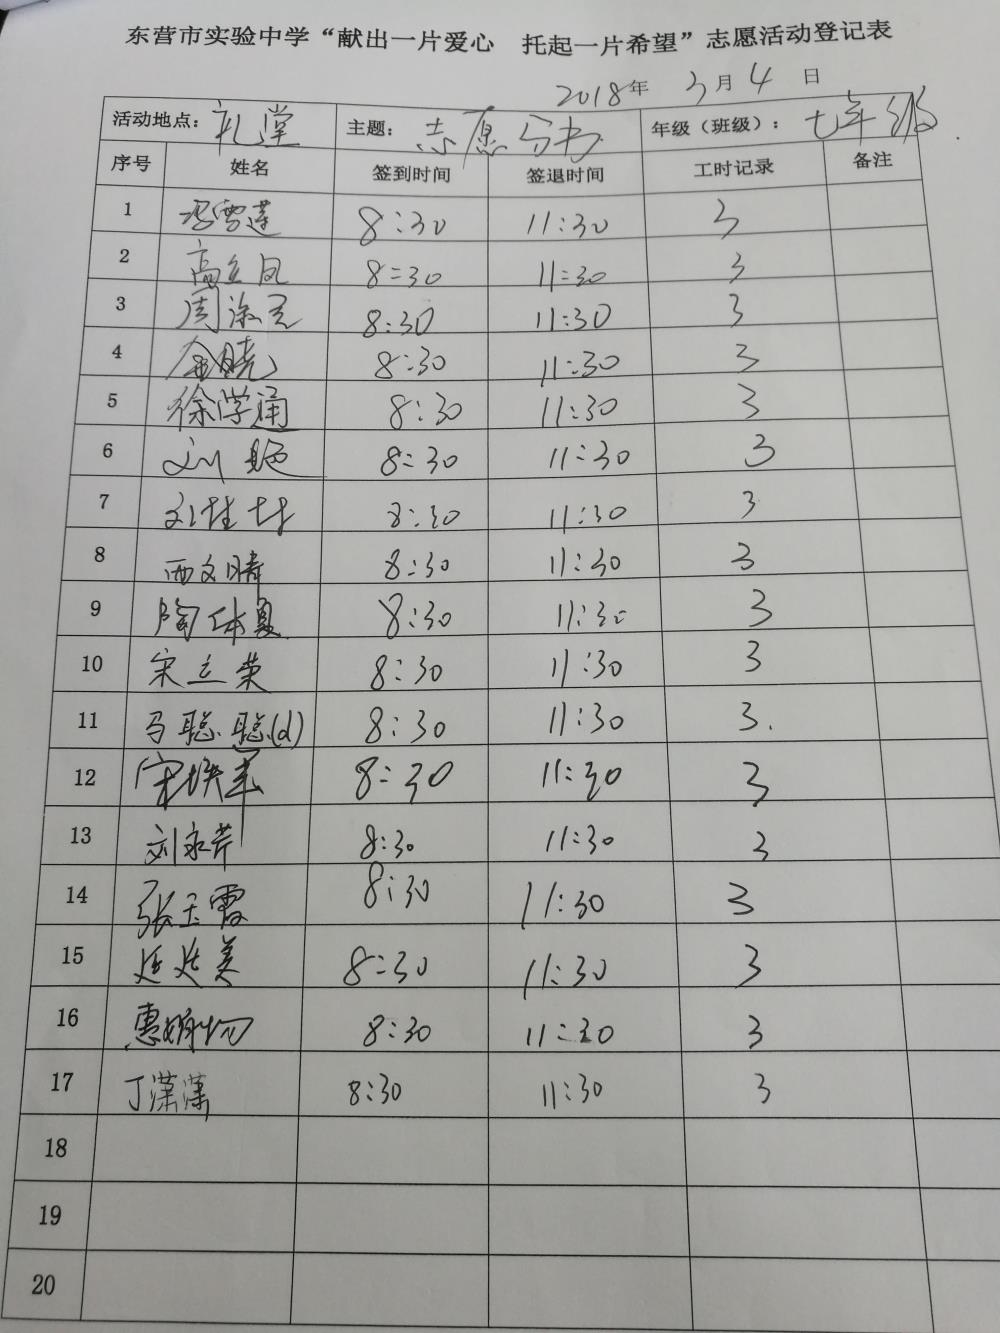 东营市实验中学“献出一片爱心 托起一片希望”志愿活动登记表
2018年 3月 4 日
活动地点：礼堂 主题：志愿 年级（班级）：七年级
序号 姓名 签到时间 签退时间 工时记录 备注
1 冯雪莲 8:30 11:30 3
2 高立凤 8:30 11:30 3
3 周 8:30 11:30 3
4 晓 8:30 11:30 3
5 徐学通 8:30 11:30 3
6 刘 8:30 11:30 3
7 刘 8:30 11:30 3
8 西文晴 8:30 11:30 3
9 陶 8:30 11:30 3
10 宋立荣 8:30 11:30 3
11 马聪聪(d) 8:30 11:30 3.
12 宋 8:30 11:30 3
13 刘永芹 8:30 11:30 3
14 张玉霞 8:30 11:30 3
15 美 8:30 11:30 3
16 惠 8:30 11:30 3
17 丁潇潇 8:30 11:30 3
18
19
20